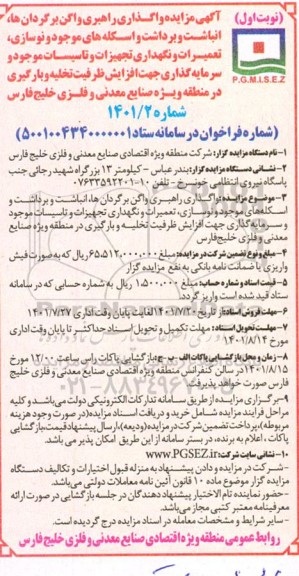 (نوبت اول)
آگهی مزایده واگذاری راهبری واگن برگردان ها،
انباشت و برداشت و اسکله های موجود و نوسازی،
تعمیرات و نگهداری تجهیزات و تاسیسات موجود و
سرمایه گذاری جهت افزایش ظرفیت تخلیه و بارگیری
P.G.M.I.S.E.Z
در منطقه ویژه صنایع معدنی و فلزی خلیج فارس
شماره ۱۴۰۱/۲
(شماره فراخوان در سامانه ستاد ۵۰۰۱۰۰۴۳۴۰۰۰۰۰۰۱)
۱- نام دستگاه مزایده گزار: شرکت منطقه ویژه اقتصادی صنایع معدنی و فلزی خلیج فارس
۲- نشانی دستگاه مزایده گزار: بندرعباس - کیلومتر ۱۳ بزرگراه شهید رجائی جنب
پاسگاه نیروی انتظامی خونسرخ - تلفن ۱۰-۰۷۶۳۳۵۹۲۲۰۱
۳- موضوع مزایده: واگذاری راهبری واگن برگردان ها، انباشت و برداشت و
اسکله‌های موجود و نوسازی، تعمیرات و نگهداری تجهیزات و تاسیسات موجود
و سرمایه گذاری جهت افزایش ظرفیت تخلیه و بارگیری در منطقه ویژه صنایع
معدنی و فلزی خلیج‌فارس
۴- مبلغ و نوع تضمین شرکت در مزایده: مبلغ ۶۵،۵۱۲،۰۰۰،۰۰۰ ریال که به صورت فیش
واریزی یا ضمانت نامه بانکی به نفع مزایده گزار
۵- قیمت اسناد و شماره حساب: مبلغ ۱،۵۰۰،۰۰۰ ریال به شماره حسابی که در سامانه
ستاد قید شده است واریز گردد.
۶- مهلت فروش اسناد: از تاریخ ۱۴۰۱/۷/۲۰ لغایت پایان وقت اداری ۱۴۰۱/۷/۲۷
۷- مهلت تحویل اسناد: مهلت تکمیل و تحویل اسناد حداکثر تا پایان وقت اداری
مورخ ۱۴۰۱/۸/۱۴
۸- زمان و محل بازگشایی پاکات الف - ب - ج: بازگشایی پاکات راس ساعت ۱۲:۰۰ مورخ
۱۴۰۱/۸/۱۵ در سالن کنفرانس منطقه ویژه اقتصادی صنایع معدنی و فلزی خلیج
فارس صورت خواهد پذیرفت.
۹- برگزاری مزایده از طریق سامانه تدارکات الکترونیکی دولت می‌باشد و کلیه
مراحل فرایند مزایده شامل خرید و دریافت اسناد مزایده (در صورت وجود هزینه
مربوطه)، پرداخت تضمین شرکت در مزایده (ودیعه)، ارسال پیشنهاد قیمت، بازگشایی
پاکات، اعلام به برنده، در بستر سامانه از این طریق امکان پذیر می باشد.
۱۰- نشانی سایت شرکت: www.PGSEZ.ir
- شرکت در مزایده و دادن پیشنهاد به منزله قبول اختیارات و تکالیف دستگاه
مزایده گزار موضوع ماده ۱۰ قانون آئین نامه معاملات دولتی می‌باشد.
- حضور نماینده تام الاختیار پیشنهاد دهندگان در جلسه بازگشایی در صورت ارائه
معرفینامه معتبر کتبی مجاز می‌باشد.
- سایر شرایط و مشخصات معامله در اسناد مزایده درج گردیده است.
روابط عمومی منطقه ویژه اقتصادی صنایع معدنی و فلزی خلیج فارس